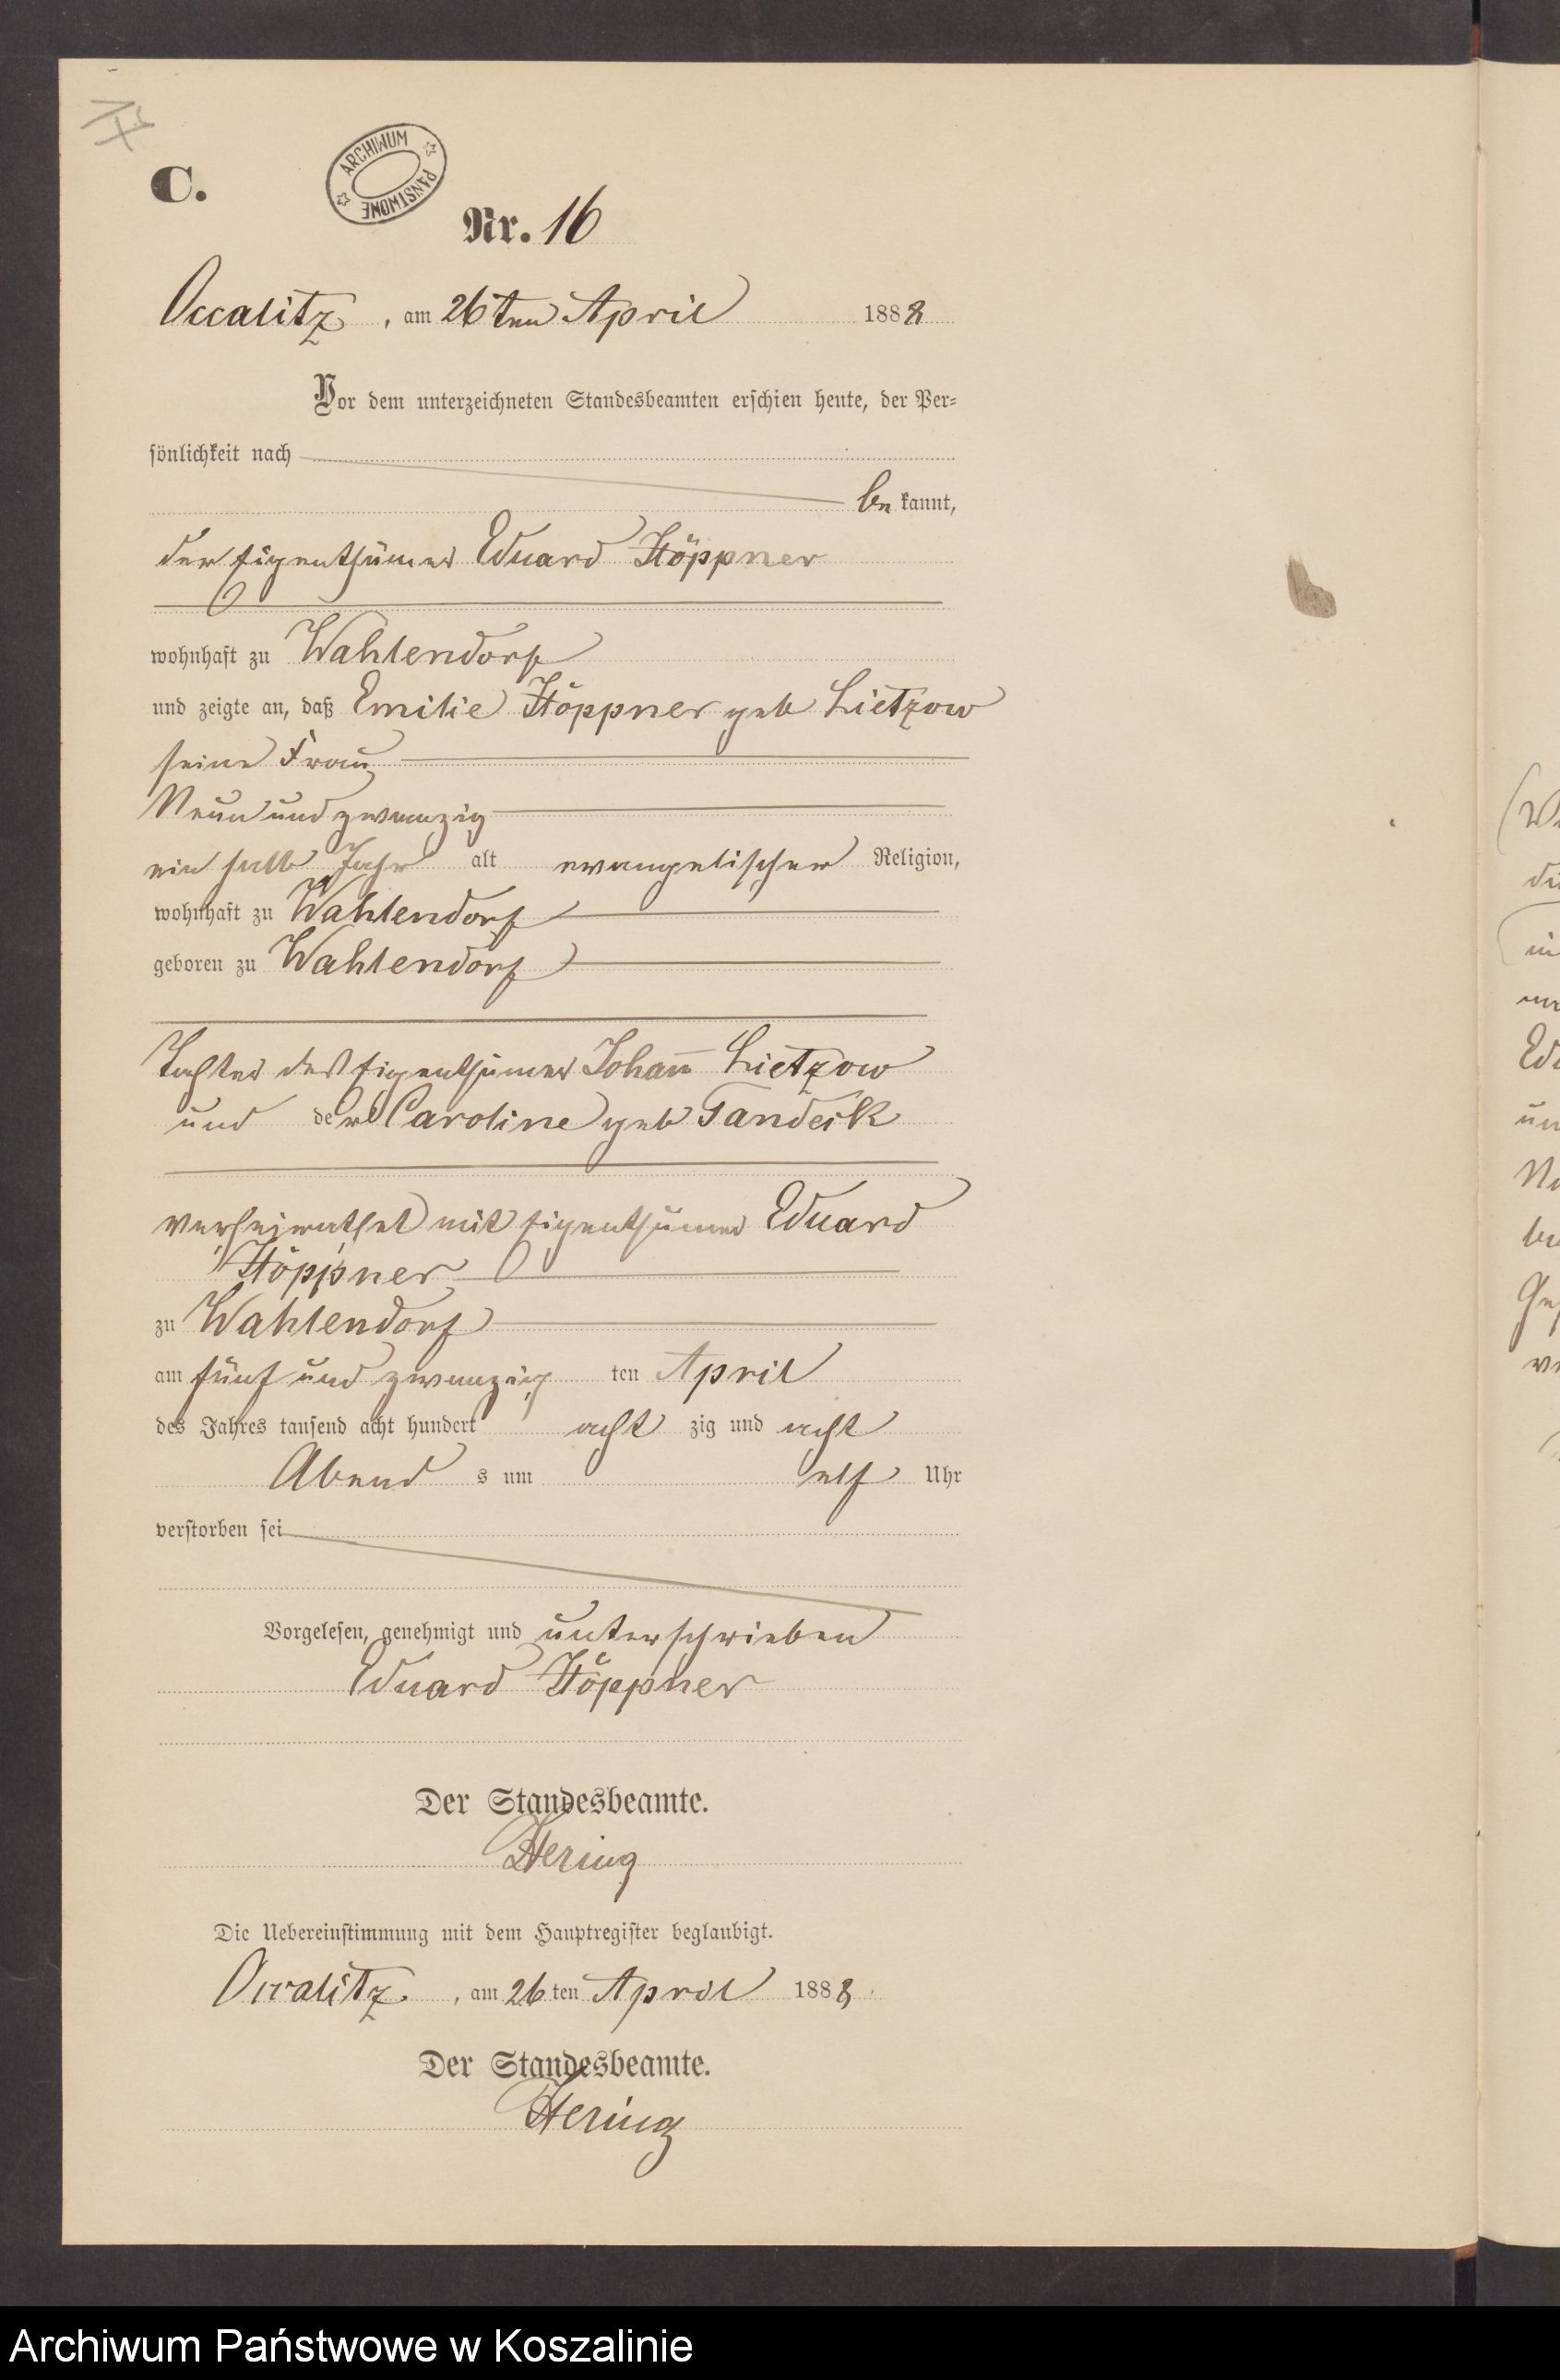 C.
ARCHIWUM PAŃSTWOWE
Nr. 16
Occalitz, am 26ten April 1888
Vor dem unterzeichneten Standesbeamten erschien heute, der Per-
sönlichkeit nach
be kannt,
der Eigenthümer Eduard Höppner
wohnhaft zu Wahlendorf
und zeigte an, daß Emilie Höppner geb Lietzow
seine Frau
Neun und zwanzig
ein halb Jahr alt evangelischer Religion,
wohnhaft zu Wahlendorf
geboren zu Wahlendorf
Tochter des Eigenthümer Johan̄ Lietzow
und der Caroline geb Tandeik
verheirathet mit Eigenthümer Eduard
Höppner
zu Wahlendorf
am fünf und zwanzig ten April
des Jahres tausend acht hundert acht zig und acht
Abend s um elf Uhr
verstorben sei
Vorgelesen, genehmigt und unterschrieben
Eduard Höppner
Der Standesbeamte.
Hering
Die Uebereinstimmung mit dem Hauptregister beglaubigt.
Occalitz, am 26 ten April 1888
Der Standesbeamte.
Hering
Archiwum Państwowe w Koszalinie